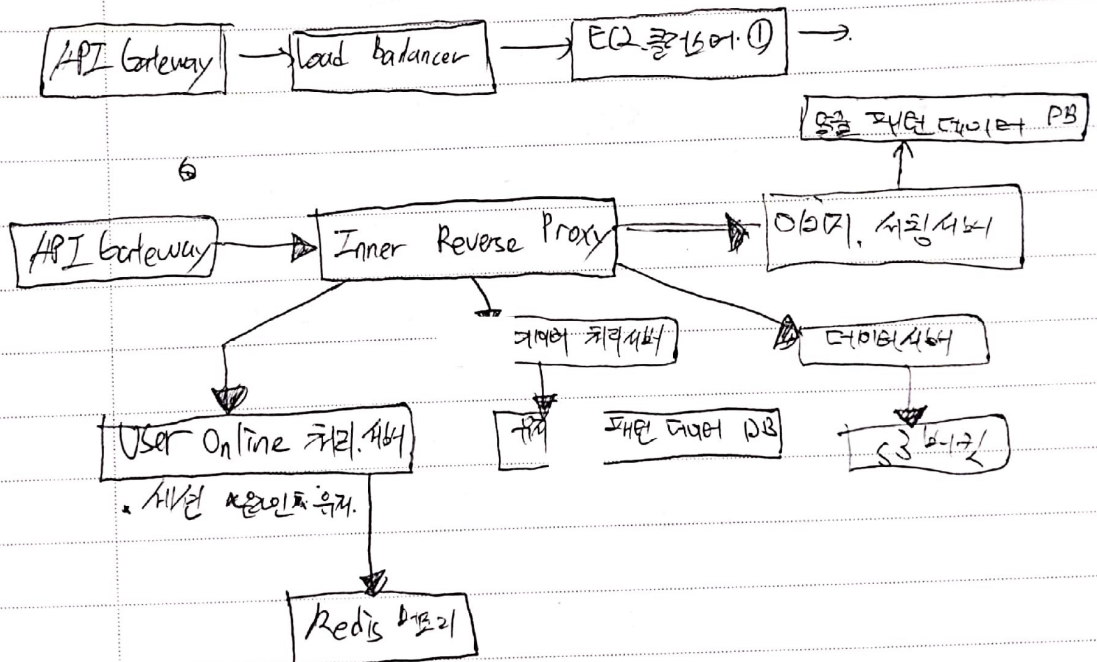 API Gateway
Load Balancer
EC2 클러스터 ①
얼굴 패턴 데이터 DB
API Gateway
Inner Reverse Proxy
이미지 서칭서버
데이터 처리서버
데이터서버
User Online 처리서버
패턴 데이터 DB
S3 버킷
세션 유지.
Redis 메모리